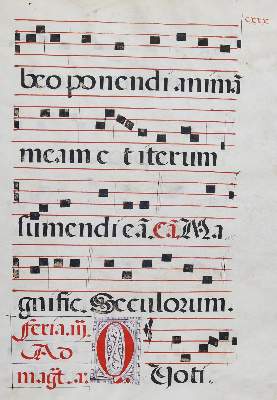 cxix
beo ponendi animā
meam et iterum
sumendi eā. eā. Ma
gnific. Seculorum.
feria. iij.
Ad
mag̃t. a. Quoti.